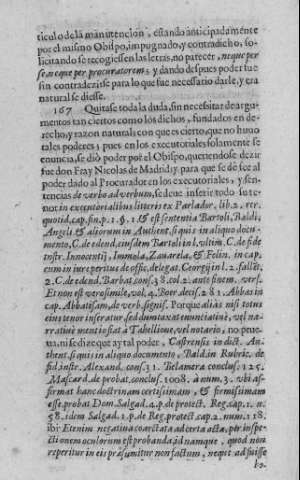 ticulo de la manutencion, estando anticipadamẽte
por el mismo Obispo, impugnado, y contradicho, so-
licitando se recogiessen las letras, no parecer, neque per
se, neque per procuratorem; y dando despues poder fue
sin contradezirse para lo que fue necessario darle, y era
natural se diesse.
167 Quitase toda la duda, sin necessitar de argu-
mentos tan ciertos como los dichos, fundados en de-
recho, y razon natural: con que es cierto, que no huuo
tales poderes; pues en los executoriales solamente se
enuncia, se diò poder por el Obispo, queriendose dezir
fue don Fray Nicolas de Madrid; y para que se dè fee al
poder dado al Procurador en los executoriales, y sen-
tencias de verbo ad verbum, se deue inserir todo su te-
nor in executorialibus litteris ex Parlador, lib. 2. rer.
quotid. cap. fin. p. 1. §. 1. & est sententia Bartoli, Baldi,
Angeli & aliorum in Authent. si quis in aliquo docu-
mento, C. de edend. eiusdem Bartoli in l. vltim. C. de fide
instr. Innocentij, Immola, Zauarela, & Felin. in cap.
cum in iure peritus de offic. delegat. Georgij in l. 2. fallēt.
2. C. de edend. Barbat. cons. 38. col. 2. ante finem, vers.
Et non est verosimile, vol. 4. Boer. decis. 281. Abbas in
cap. Abbatisam, de verb. signif. Porque aliàs nisi totus
eius tenor inseratur, sed dumtaxat enuntiatiuè, vel nar-
ratiuè mentio fiat à Tabellione, vel notario, no prue-
ua, ni se dize que ay tal poder, Castrensis in dict. Au-
thent. si quis in aliquo documento, Bald. in Rubric. de
fid. instr. Alexand. cons. 31. Belamera conclus. 125.
Mascard. de probat. conclus. 1008. à num. 3. vbi as-
firmat hanc doctrinam certisimam, & firmisimam
esse, probat Dom. Salgad. 4. p. de protect. Reg. cap. 1. n.
58. idem Salgad. 1. p. de Reg. protect. cap. 2. num. 118.
ibi: Etenim negatiua coarctata ad certa acta, per inspe-
ctionem oculorum est probanda id namque, quod non
reperitur in eis præsumitur non factum, neque adfuisse